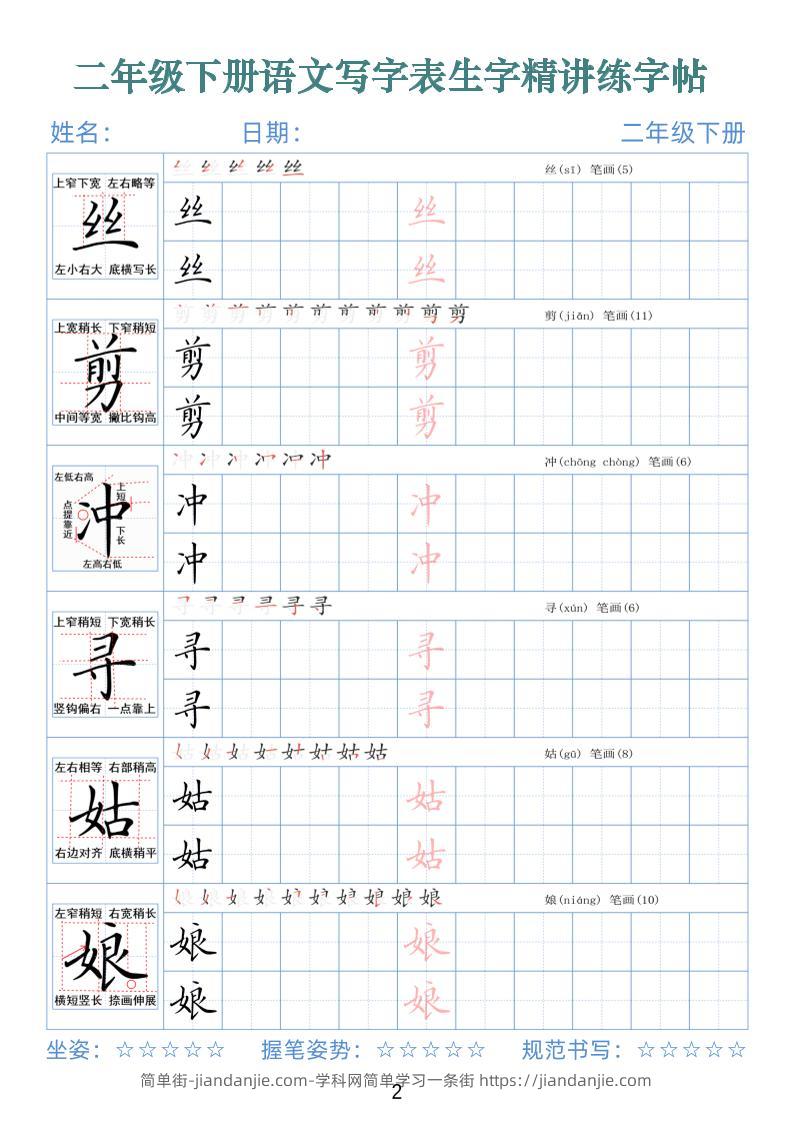 二年级下册语文写字表生字精讲练字帖
姓名： 日期： 二年级下册
丝(sī) 笔画(5)
上窄下宽 左右略等
丝
左小右大 底横写长
丝 丝
丝 丝
剪(jiǎn) 笔画(11)
上宽稍长 下窄稍短
剪
中间等宽 撇比钩高
剪 剪
剪 剪
冲(chōng chòng) 笔画(6)
左低右高
上短
点提靠近
冲
下长
左高右低
冲 冲
冲 冲
寻(xún) 笔画(6)
上窄稍短 下宽稍长
寻
竖钩偏右 一点靠上
寻 寻
寻 寻
姑(gū) 笔画(8)
左右相等 右部稍高
姑
右边对齐 底横稍平
姑 姑
姑 姑
娘(niáng) 笔画(10)
左窄稍短 右宽稍长
娘
横短竖长 捺画伸展
娘 娘
娘 娘
坐姿：☆☆☆☆☆ 握笔姿势：☆☆☆☆☆ 规范书写：☆☆☆☆☆
简单街-jiandanjie.com-学科网简单学习一条街 https://jiandanjie.com
2